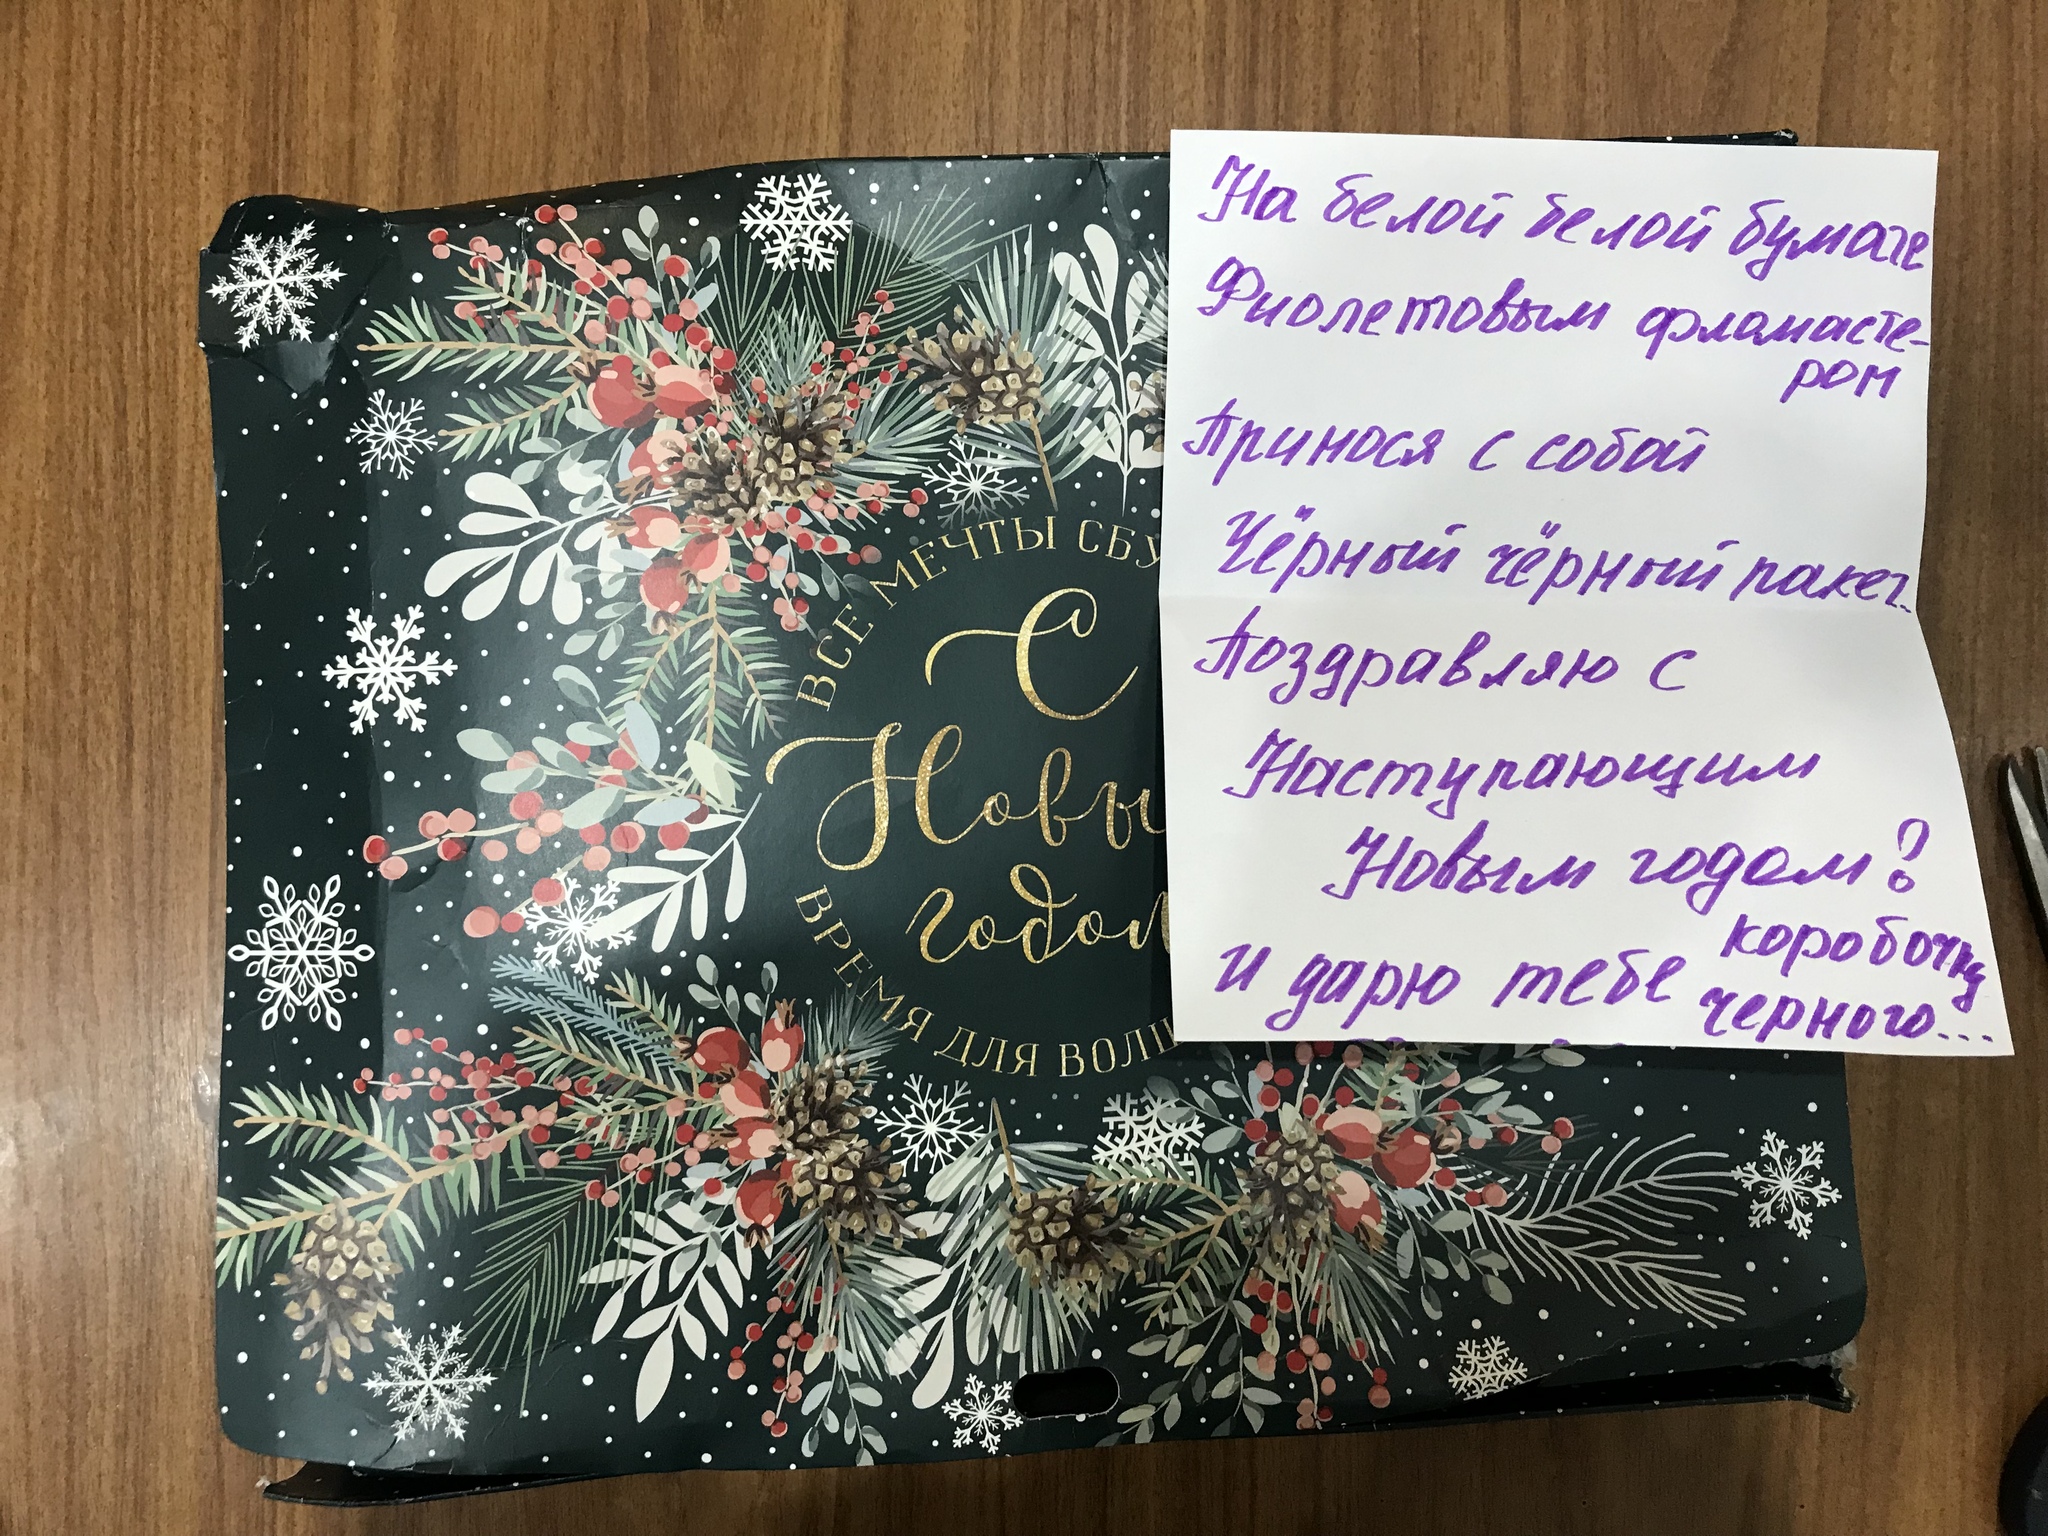 ВСЕ МЕЧТЫ СБУ
С
Новы
годом
ВРЕМЯ ДЛЯ ВОЛ
На белой белой бумаге
Фиолетовым фламасте-
ром
Принося с собой
Чёрный чёрный пакет.
Поздравляю с
Наступающим
Новым годом?
И дарю тебе коробочку
черного...